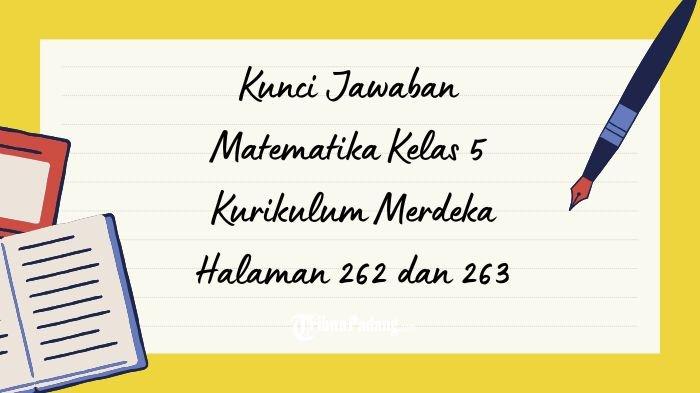 Kunci Jawaban
Matematika Kelas 5
Kurikulum Merdeka
Halaman 262 dan 263
TribunPadang.com